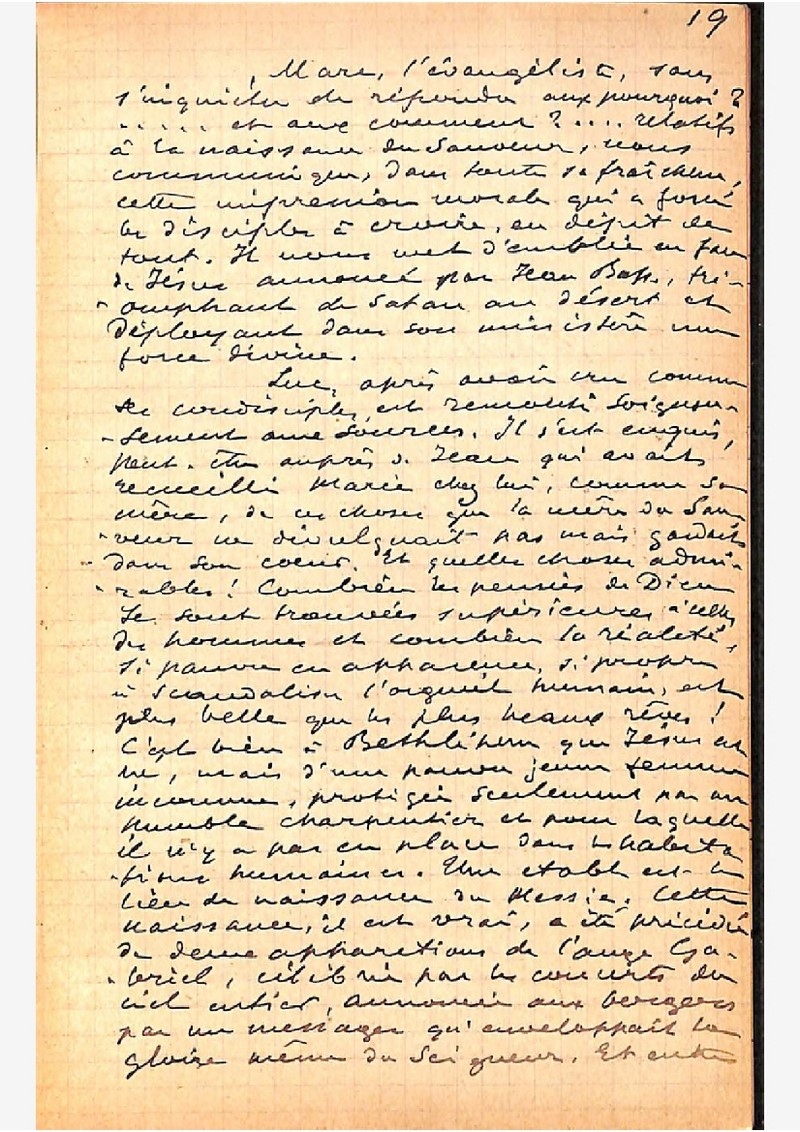 19
Marc, l'évangéliste, sans
s'inquiéter de répondre aux pourquoi ?
..... et aux comment ? .... relatifs
à la naissance du Sauveur, nous
communique, dans toute sa fraîcheur,
cette impression morale qui a forcé
les disciples à croire, en dépit de
tout. Il nous met d'emblée en face
de Jésus annoncé par Jean Bapt., tri-
-omphant de Satan au désert et
déployant dans son ministère une
force divine.
Luc, après avoir cru comme
ses condisciples, est remonté soigneu-
-sement aux sources. Il s'est enquis,
peut-être auprès de Jean qui avait
recueilli Marie chez lui, comme sa
mère, de ces choses que la mère du Sau-
-veur ne divulguait pas mais gardait
-dans son coeur. Et quelles choses admi-
-rables ! Combien les pensées de Dieu
se sont trouvées supérieures à celles
des hommes et combien la réalité,
si pauvre en apparence, si propre
à scandaliser l'orgueil humain, est
plus belle que les plus beaux rêves !
C'est bien à Bethléhem que Jésus est
né, mais d'une pauvre jeune femme
inconnue, protégée seulement par un
humble charpentier et pour laquelle
il n'y a pas eu place dans les habita-
-tions humaines. Une étable est le
lieu de naissance du Messie. Cette
naissance, il est vrai, a été précédée
de deux apparitions de l'ange Ga-
-briel, célébrée par les concerts du
ciel entier, annoncée aux bergers
par un messager qu'enveloppait la
gloire même du Seigneur. Et cette